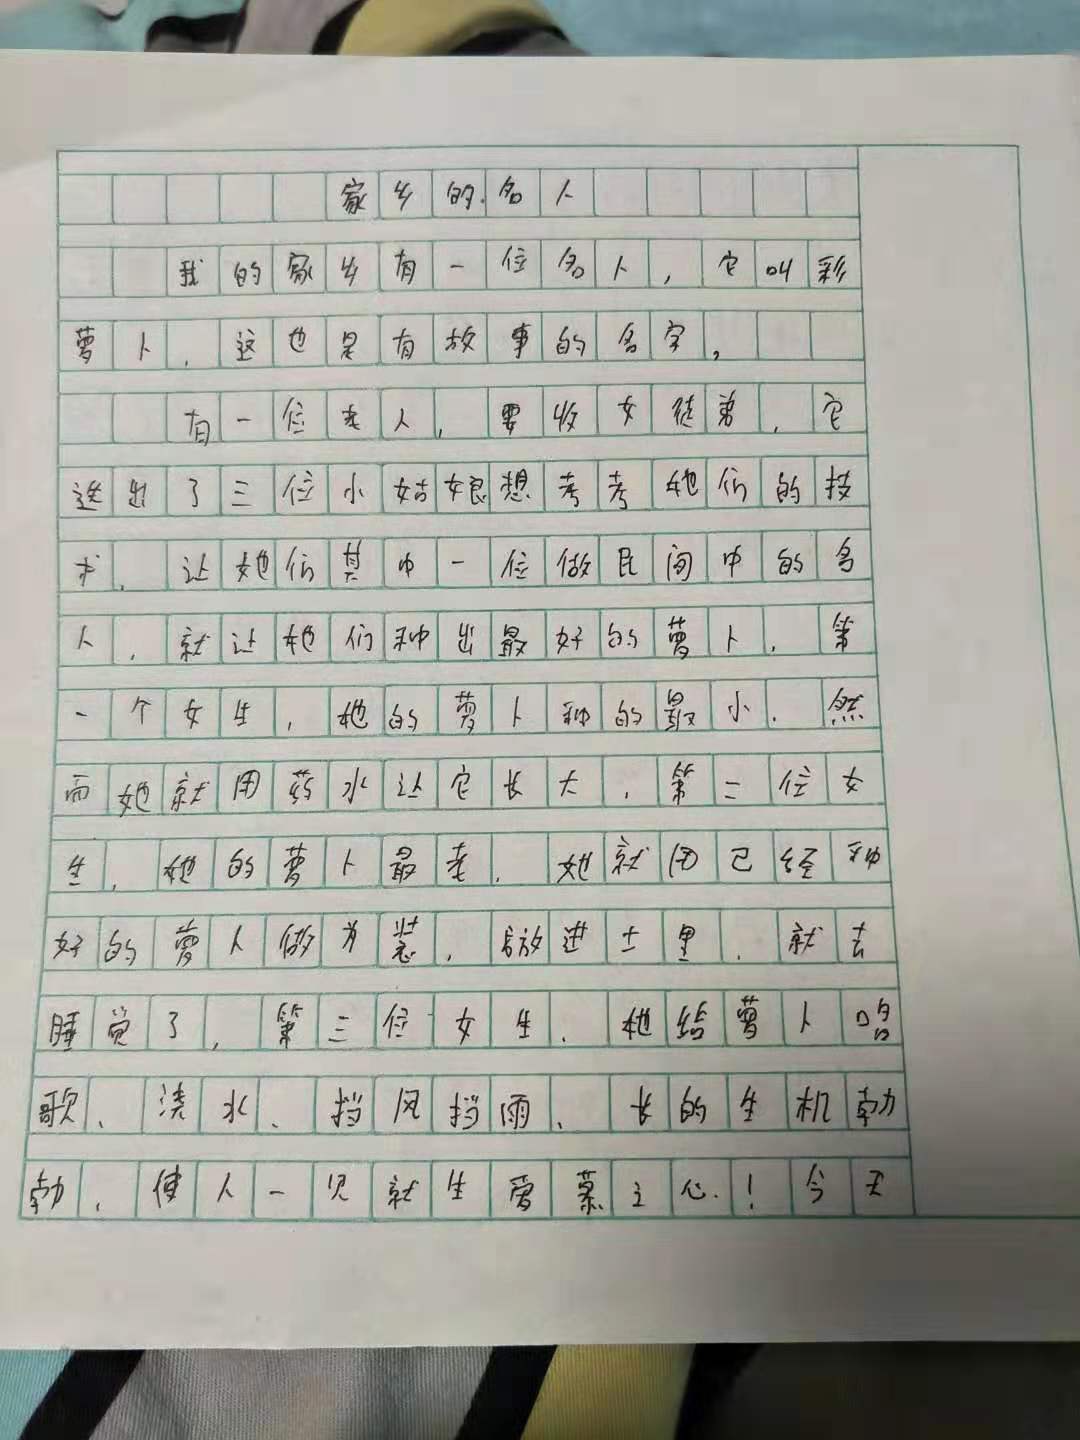 家乡的名人
我的家乡有一位名人，它叫彩
萝卜，这也是有故事的名字，
有一位老人，要收女徒弟，它
选出了三位小姑娘想考考她们的技
术，让她们其中一位做民间中的名
人，就让她们种出最好的萝卜，第
一个女生，她的萝卜种的最小，然
而她就用药水让它长大，第二位女
生，她的萝卜最老，她就用已经种
好的萝卜做为，放进土里，就去
睡觉了，第三位女生，她给萝卜唱
歌、浇水、挡风挡雨，长的生机勃
勃，使人一见就生爱慕之心！今天